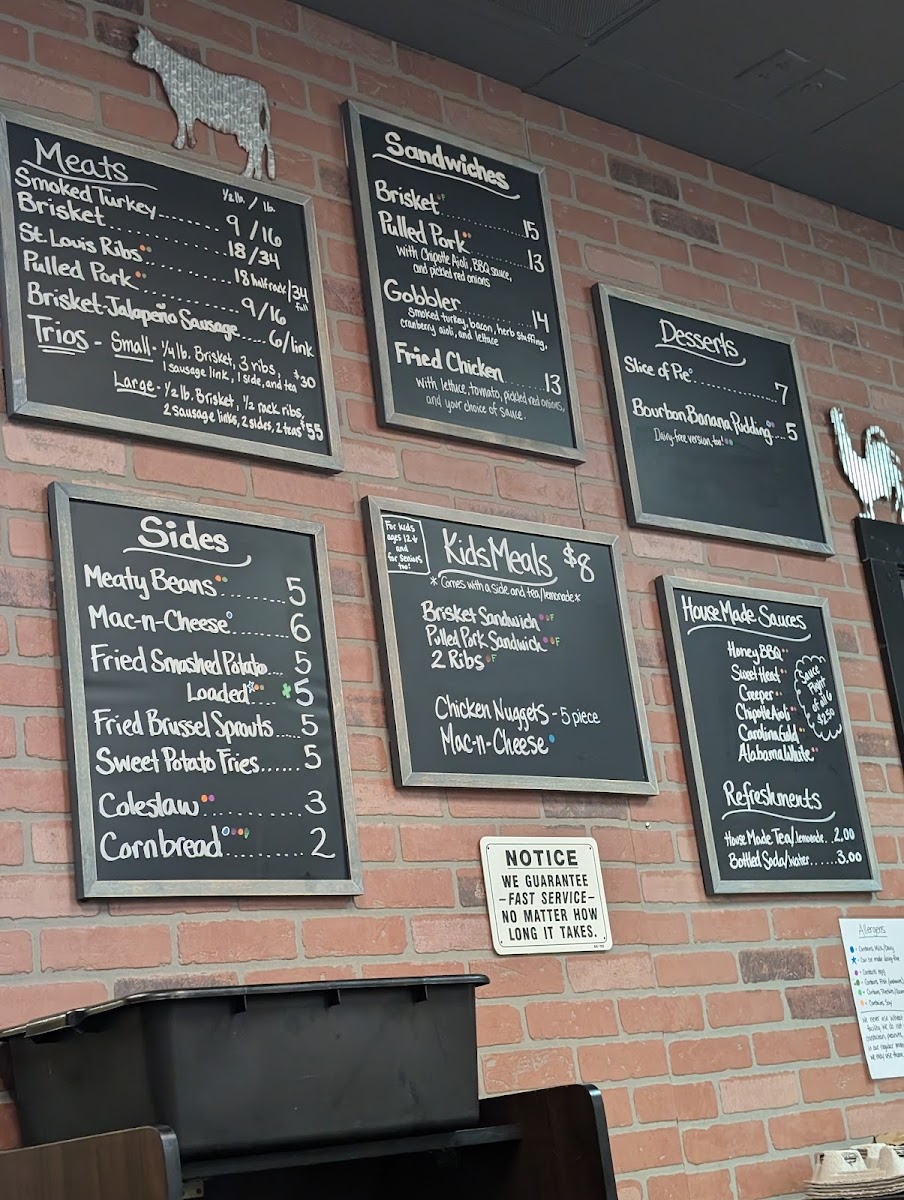 Meats
1/2 lb. / lb.
Smoked Turkey....... 9 / 16
Brisket............. 18 / 34
St. Louis Ribs........ 18 half rack / 34 full
Pulled Pork......... 9 / 16
Brisket-Jalapeño Sausage..... 6 / link
Trios - Small - 1/4 lb. Brisket, 3 ribs,
1 sausage link, 1 side, and tea $30
Large - 1/2 lb. Brisket, 1/2 rack ribs,
2 sausage links, 2 sides, 2 teas $55
Sandwiches
Brisket............ 15
Pulled Pork........ 13
with Chipotle Aioli, BBQ sauce,
and pickled red onions
Gobbler............ 14
smoked turkey, bacon, herb stuffing,
cranberry aioli, and lettuce
Fried Chicken...... 13
with lettuce, tomato, pickled red onions,
and your choice of sauce
Desserts
Slice of Pie............ 7
Bourbon Banana Pudding.... 5
Dairy-free version, too!
Sides
Meaty Beans......... 5
Mac-n-Cheese........ 6
Fried Smashed Potato... 5
Loaded * 5
Fried Brussel Sprouts.... 5
Sweet Potato Fries...... 5
Coleslaw............ 3
Cornbread........... 2
For kids
ages 12 ↓
and
for seniors
too!
Kids Meals $8
* Comes with a side and tea/lemonade *
Brisket Sandwich
Pulled Pork Sandwich
2 Ribs
Chicken Nuggets - 5 piece
Mac-n-Cheese
House Made Sauces
Honey BBQ
Sweet Heat
Creeper
Chipotle Aioli
Carolina Gold
Alabama White
Sauce
Flight
of all 6
$2.50
Refreshments
House Made Tea/lemonade.. 2.00
Bottled Soda/water...... 3.00
NOTICE
WE GUARANTEE
-FAST SERVICE-
NO MATTER HOW
LONG IT TAKES.
Allergens
= Contains Milk/Dairy
= Can be made dairy-free
= Contains egg
= Contains Soy